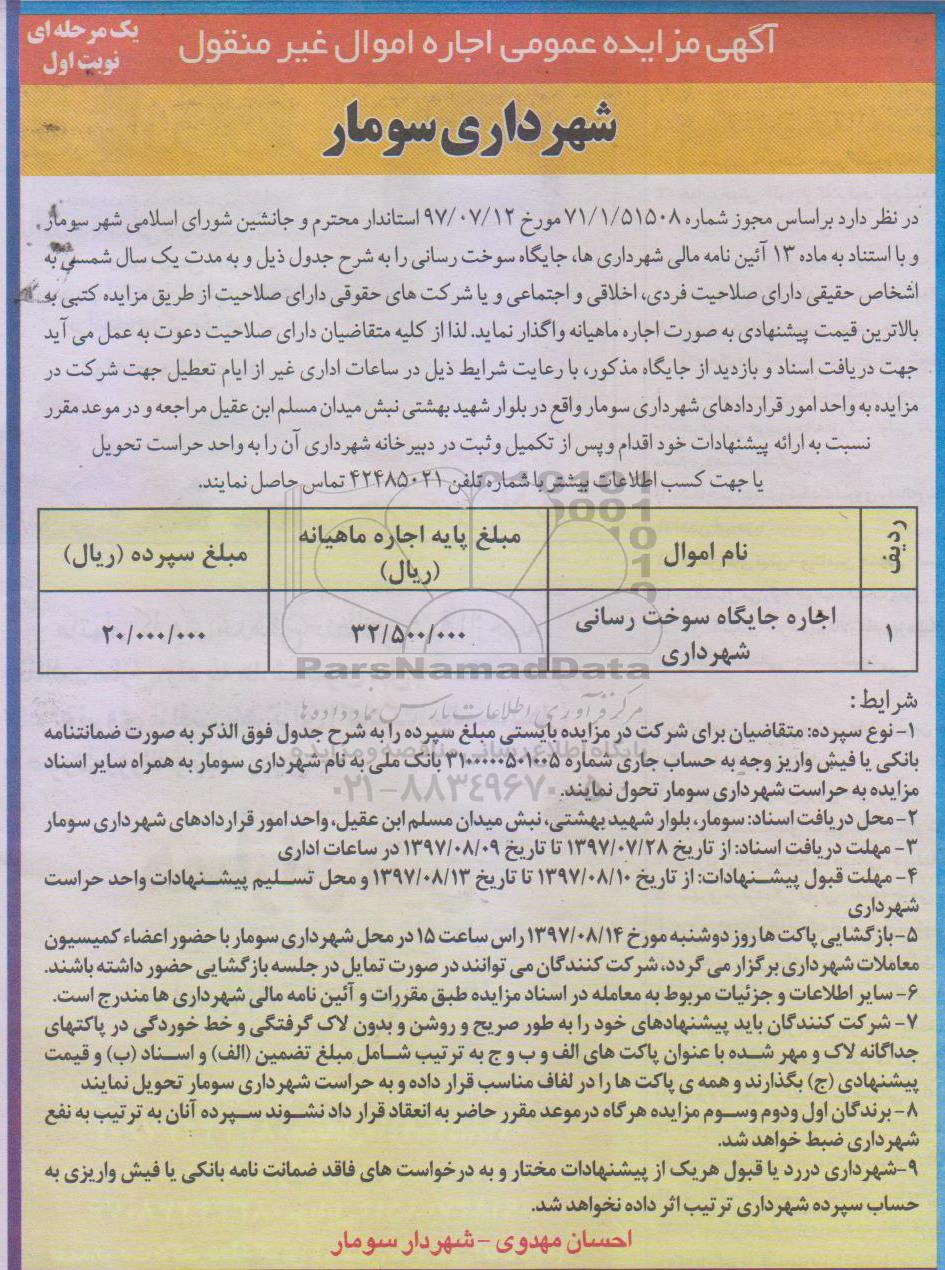 آگهی مزایده عمومی اجاره اموال غیر منقول
یک مرحله ای
نوبت اول
شهرداری سومار
در نظر دارد براساس مجوز شماره ۷۱/۱/۵۱۵۰۸ مورخ ۹۷/۰۷/۱۲ استاندار محترم و جانشین شورای اسلامی شهر سومار
و با استناد به ماده ۱۳ آئین نامه مالی شهرداری ها، جایگاه سوخت رسانی را به شرح جدول ذیل و به مدت یک سال شمسی به
اشخاص حقیقی دارای صلاحیت فردی، اخلاقی و اجتماعی و یا شرکت های حقوقی دارای صلاحیت از طریق مزایده کتبی به
بالاترین قیمت پیشنهادی به صورت اجاره ماهیانه واگذار نماید. لذا از کلیه متقاضیان دارای صلاحیت دعوت به عمل می آید
جهت دریافت اسناد و بازدید از جایگاه مذکور، با رعایت شرایط ذیل در ساعات اداری غیر از ایام تعطیل جهت شرکت در
مزایده به واحد امور قراردادهای شهرداری سومار واقع در بلوار شهید بهشتی نبش میدان مسلم ابن عقیل مراجعه و در موعد مقرر
نسبت به ارائه پیشنهادات خود اقدام و پس از تکمیل و ثبت در دبیرخانه شهرداری آن را به واحد حراست تحویل
یا جهت کسب اطلاعات بیشتر با شماره تلفن ۴۲۴۸۵۰۲۱ تماس حاصل نمایند.
ردیف نام اموال مبلغ پایه اجاره ماهیانه (ریال) مبلغ سپرده (ریال)
۱ اجاره جایگاه سوخت رسانی شهرداری ۳۲/۵۰۰/۰۰۰ ۲۰/۰۰۰/۰۰۰
ParsNamadData
مرکز فرآوری اطلاعات پارس نماد داده ها
پایگاه اطلاع رسانی مناقصه و مزایده
۰۲۱-۸۸۳۴۹۶۷۰-۵
شرایط:
۱- نوع سپرده: متقاضیان برای شرکت در مزایده بایستی مبلغ سپرده را به شرح جدول فوق الذکر به صورت ضمانتنامه
بانکی یا فیش واریز وجه به حساب جاری شماره ۳۱۰۰۰۰۰۵۰۱۰۰۵ بانک ملی به نام شهرداری سومار به همراه سایر اسناد
مزایده به حراست شهرداری سومار تحول نمایند.
۲- محل دریافت اسناد: سومار، بلوار شهید بهشتی، نبش میدان مسلم ابن عقیل، واحد امور قراردادهای شهرداری سومار
۳- مهلت دریافت اسناد: از تاریخ ۱۳۹۷/۰۷/۲۸ تا تاریخ ۱۳۹۷/۰۸/۰۹ در ساعات اداری
۴- مهلت قبول پیشنهادات: از تاریخ ۱۳۹۷/۰۸/۱۰ تا تاریخ ۱۳۹۷/۰۸/۱۳ و محل تسلیم پیشنهادات واحد حراست
شهرداری
۵- بازگشایی پاکت ها روز دوشنبه مورخ ۱۳۹۷/۰۸/۱۴ راس ساعت ۱۵ در محل شهرداری سومار با حضور اعضاء کمیسیون
معاملات شهرداری برگزار می گردد، شرکت کنندگان می توانند در صورت تمایل در جلسه بازگشایی حضور داشته باشند.
۶- سایر اطلاعات و جزئیات مربوط به معامله در اسناد مزایده طبق مقررات و آئین نامه مالی شهرداری ها مندرج است.
۷- شرکت کنندگان باید پیشنهادهای خود را به طور صریح و روشن و بدون لاک گرفتگی و خط خوردگی در پاکتهای
جداگانه لاک و مهر شده با عنوان پاکت های الف و ب و ج به ترتیب شامل مبلغ تضمین (الف) و اسناد (ب) و قیمت
پیشنهادی (ج) بگذارند و همه ی پاکت ها را در لفاف مناسب قرار داده و به حراست شهرداری سومار تحویل نمایند
۸- برندگان اول ودوم وسوم مزایده هرگاه درموعد مقرر حاضر به انعقاد قرار داد نشوند سپرده آنان به ترتیب به نفع
شهرداری ضبط خواهد شد.
۹-شهرداری دررد یا قبول هریک از پیشنهادات مختار و به درخواست های فاقد ضمانت نامه بانکی یا فیش واریزی به
حساب سپرده شهرداری ترتیب اثر داده نخواهد شد.
احسان مهدوی - شهردار سومار